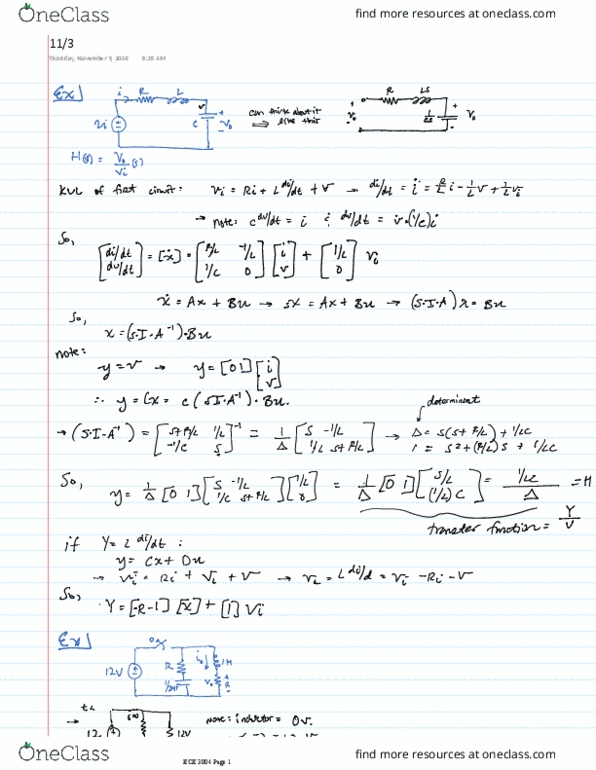 OneClass
find more resources at oneclass.com
11/3
Thursday, November 3, 2006 9:28 AM
Ex]
i R L
Vi
c v + Vo -
can think about it
⇒ like this
R LS
+ Vo -
H(s) = Vo/Vi (s)
KVL of first circuit: Vi = Ri + L di/dt + V → di/dt = i = R/L i - 1/L V + 1/L Vi
→ note: c dv/dt = i ; dv/dt = v̇ = (1/c)i
So,
[di/dt dv/dt] = [ẋ] = [R/L -1/L 1/c 0] [i v] + [1/L 0] Vi
ẋ = Ax + Bu → sx = Ax + Bu → (S·I-A)x = Bu
So,
x = (S·I-A⁻¹)·Bu
note:
y = v → y = [0 1] [i v]
∴ y = Cx = c(SI-A⁻¹)·Bu.
determinant
→ (S·I-A⁻¹) = [S+R/L 1/L -1/c S]⁻¹ = 1/Δ [S -1/L 1/c S+R/L] → Δ = S(S+R/L) + 1/LC
= S² + (R/L)S + 1/LC
So,
y = 1/Δ [0 1] [S -1/L 1/c S+R/L] [1/L 0] = 1/Δ [0 1] [S/L (1/L)C] = 1/LC / Δ = H
transfer function = Y/U
if Y = L di/dt :
y = Cx + Du
→ Vi = Ri + VL + V → VL = L di/d = Vi - Ri - V
So,
Y = [-R -1] [x] + [1] Vi
Ex]
12V
R
io
1H
Vo
→
12V
note: inductor = 0v.
OneClass
find more resources at oneclass.com
ECE 3004 Page 1